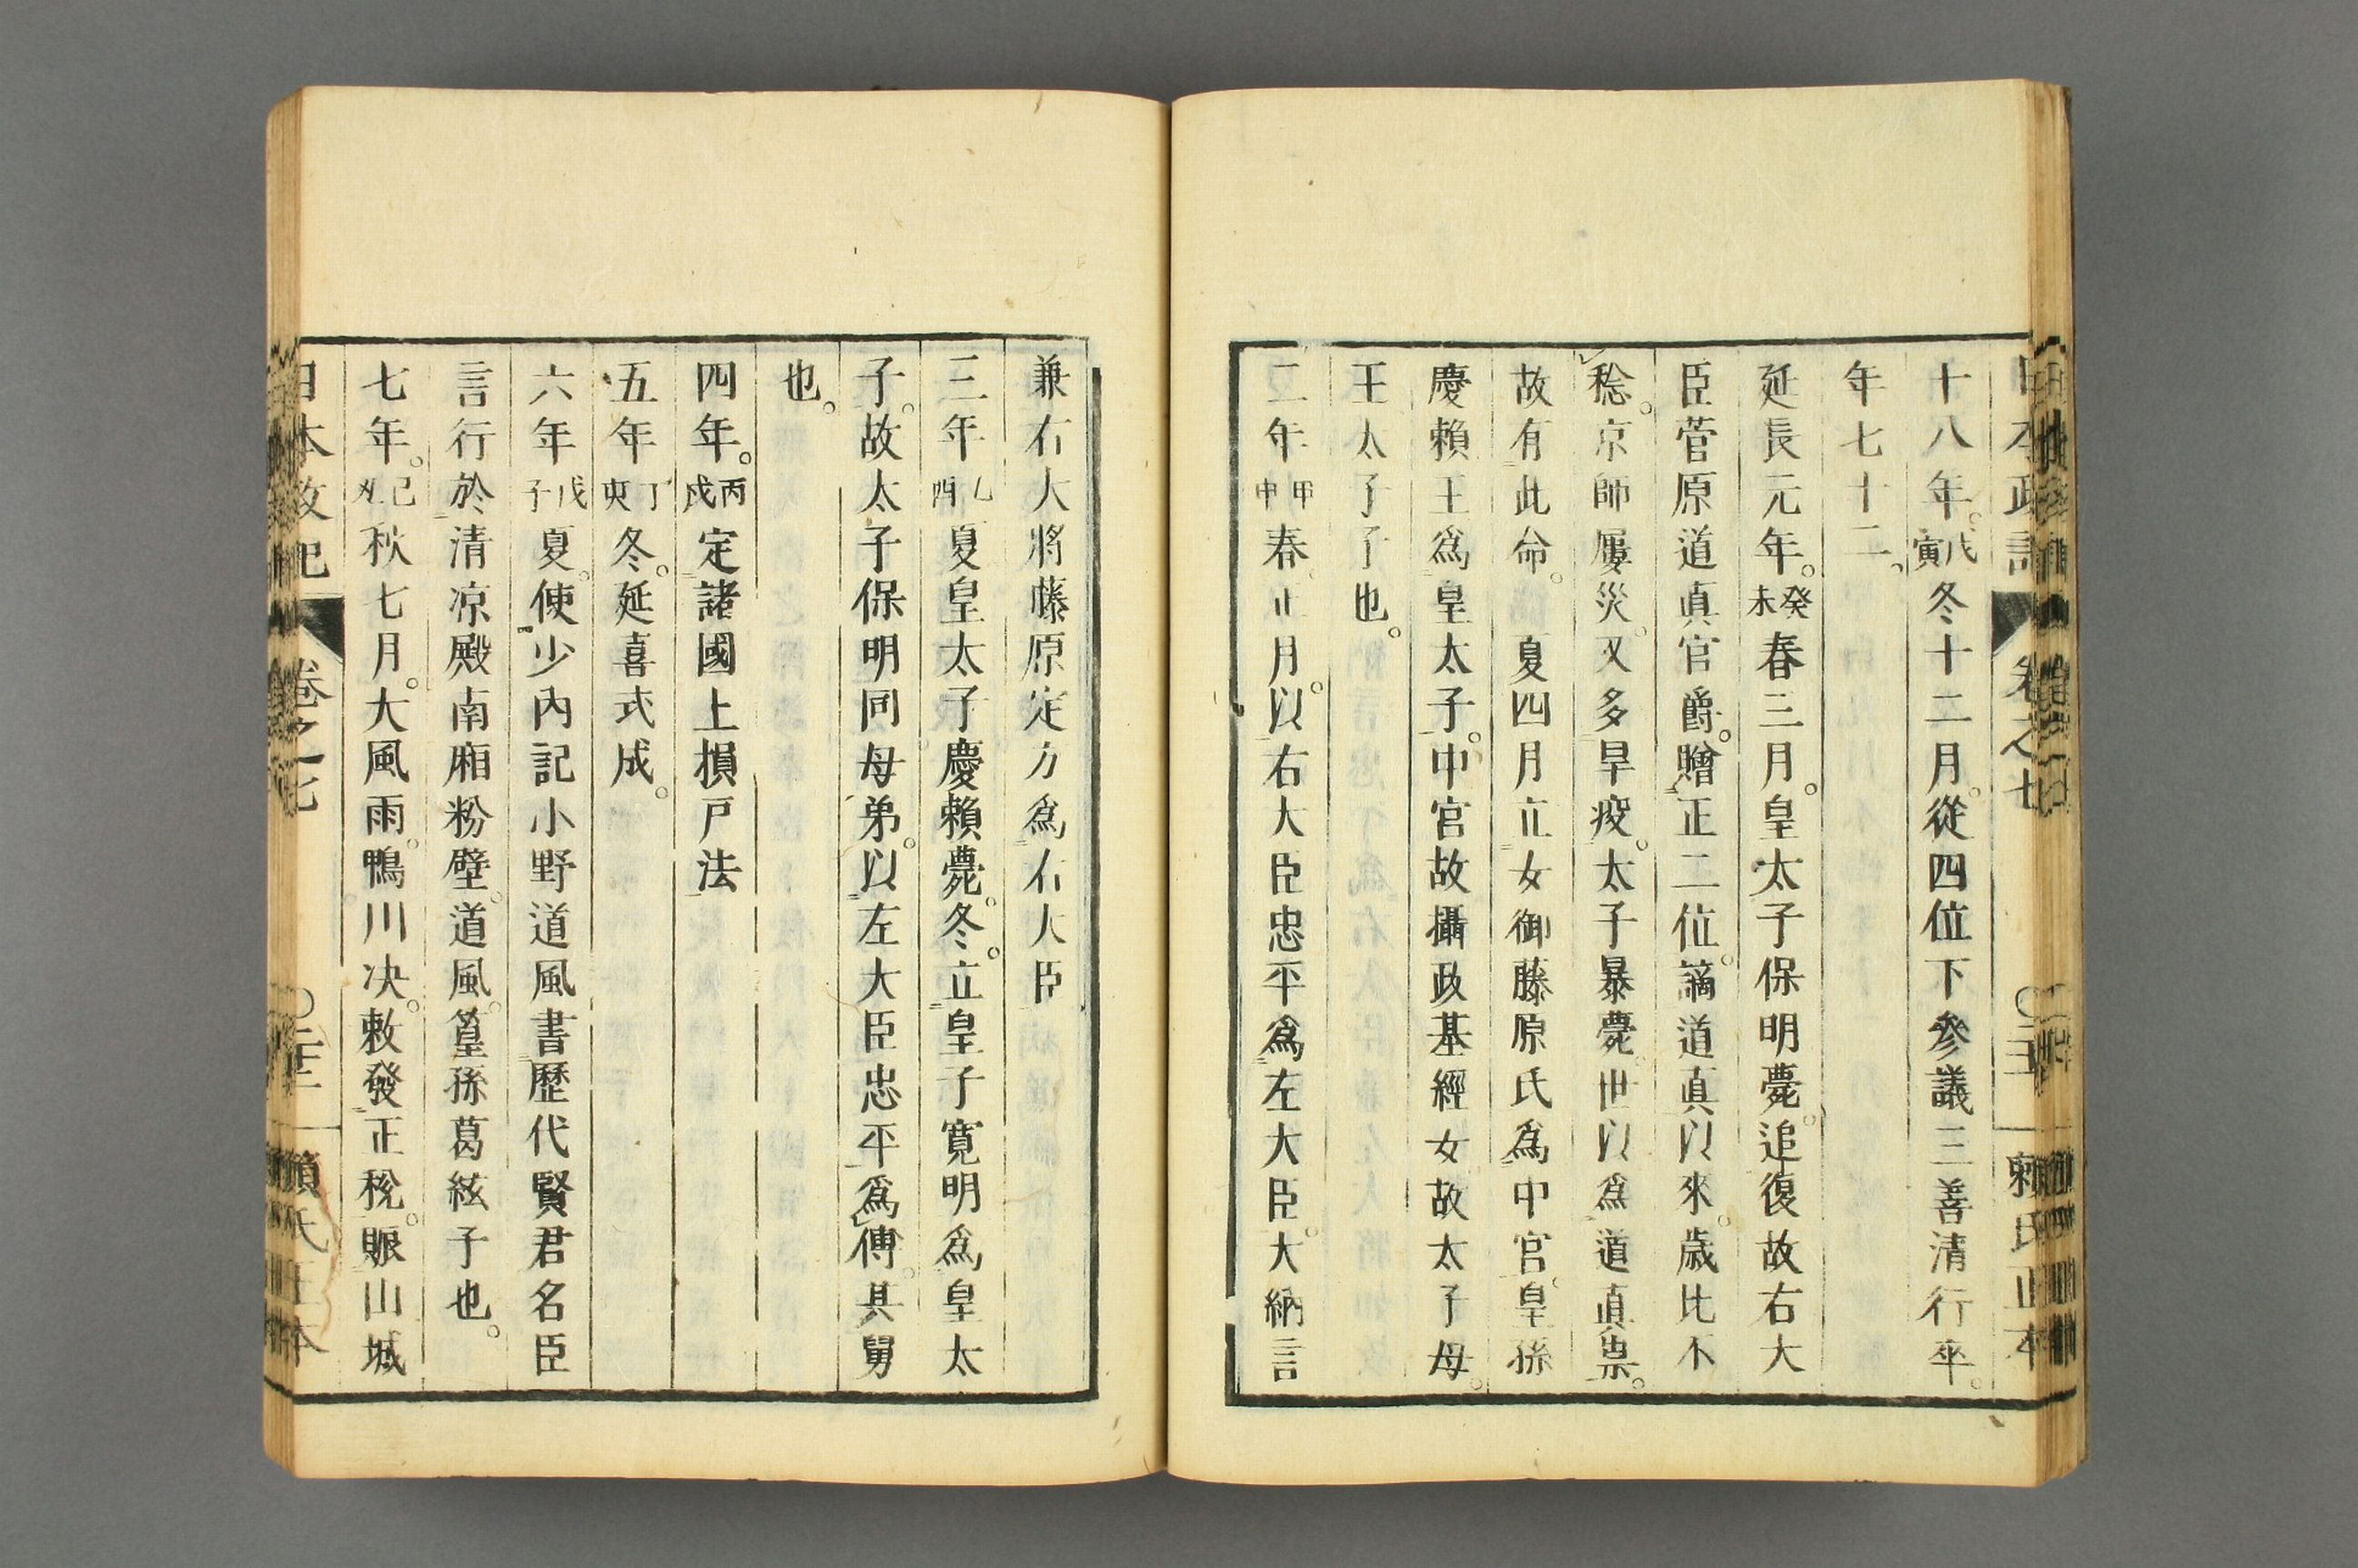 日本政記 卷之七 賴氏正本
十八年。戊寅冬十二月。從四位下參議三善清行卒。
年七十二。
延長元年。癸未春三月。皇太子保明薨。追復故右大
臣菅原道眞官爵。贈正二位。謫道眞以來。歲比不
稔。京師屢災。又多旱疫。太子暴薨。世以爲道眞祟。
故有此命。 夏四月立女御藤原氏爲中宮。皇孫
慶賴王爲皇太子。中宮故攝政基經女故太子母。
王太子子也。
二年甲申春正月。以右大臣忠平爲左大臣。大納言
兼右大將藤原定方爲右大臣
三年乙酉夏皇太子慶賴薨。冬。立皇子寛明爲皇太
子。故太子保明同母弟。以左大臣忠平爲傅。其舅
也。
四年。丙戌定諸國上損戸法
五年丁亥冬。延喜式成。
六年戊子夏。使少內記小野道風書歷代賢君名臣
言行於清凉殿南廂粉壁。道風。篁孫葛絃子也。
七年。己丑秋七月。大風雨。鴨川决。敕發正稅。賑山城
日本政記 卷之七 賴氏正本